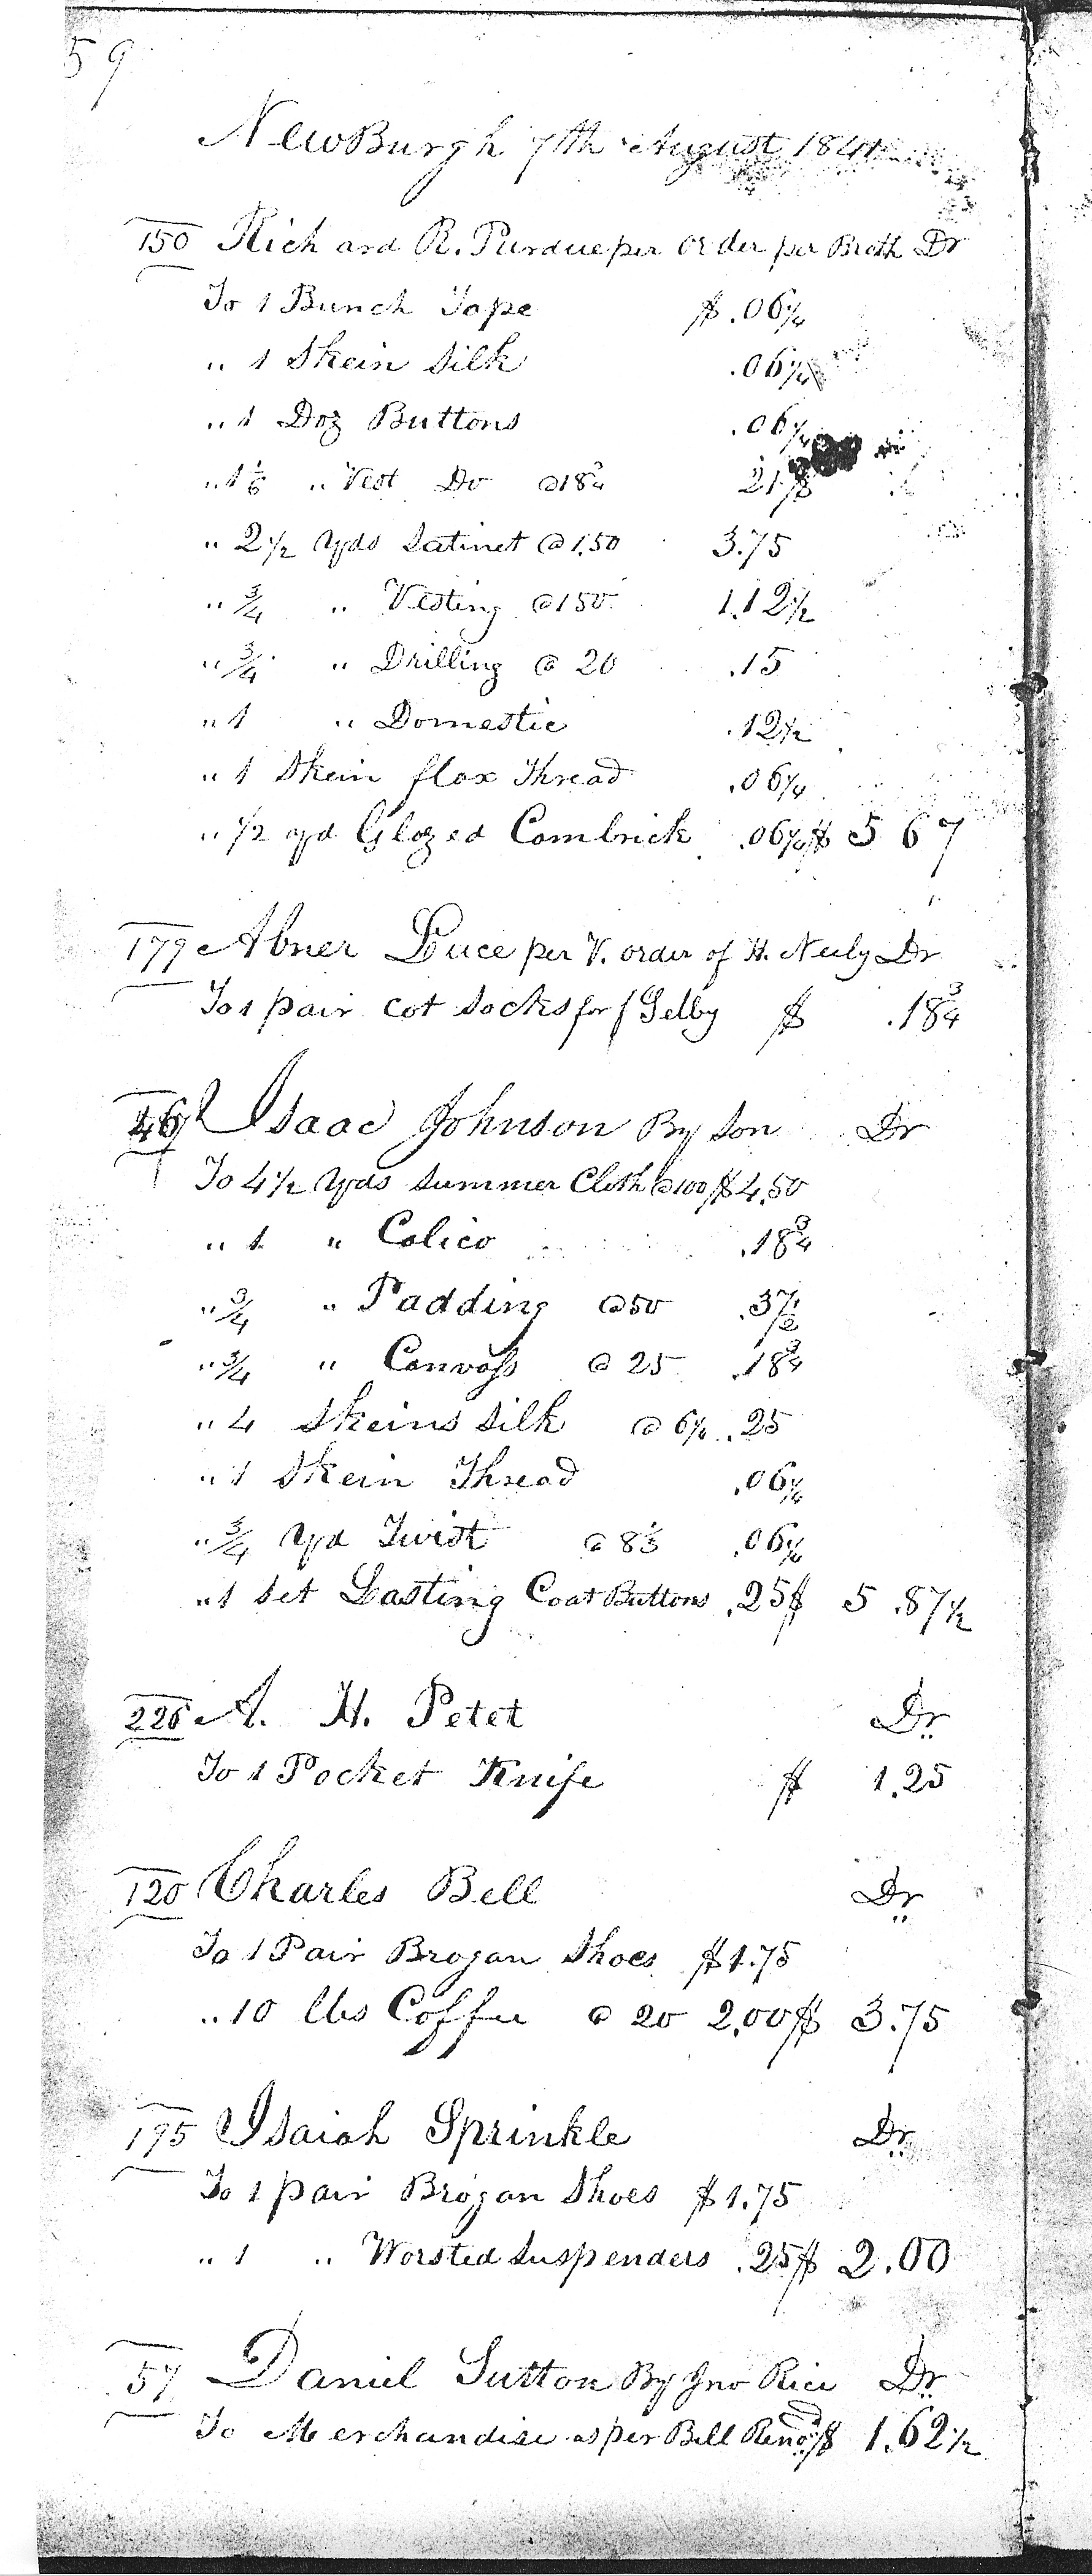 59
NewBurgh 7th August 1841
150 Richard R. Purdue per order per Broth Dr
To 1 Bunch Tape $ .06¼
" 1 Skein Silk .06¼
" 1 Doz Buttons .06¼
" 1 1/6 " Vest Do @ 18¾ 21 7/8
" 2½ Yds Satinet @ 1.50 3.75
" ¾ " Vesting @ 150 1.12½
" ¾ " Drilling @ 20 .15
" 1 " Domestic .12½
" 1 Skein flax Thread .06¼
" ½ yd Glazed Cambrick .06¼ $ 5 67
179 Abner Luce per V. order of H. Neely Dr
To 1 pair cot Socks for J Selby $ .18¾
Isaac Johnson By Son Dr
To 4½ Yds Summer Cloth @ 100 $ 4.50
" 1 " Calico .18¾
" ¾ " Padding @ 50 .37½
" ¾ " Canvass @ 25 .18¾
" 4 Skeins Silk @ 6¼ .25
" 1 Skein Thread .06¼
" ¾ Yd Twist @ 8⅓ .06¼
" 1 Set Lasting Coat Buttons .25 $ 5 .87½
226 A. H. Petet Dr
To 1 Pocket Knife $ 1.25
120 Charles Bell Dr
To 1 Pair Brogan Shoes $ 1.75
" 10 lbs Coffee @ 20 2.00 $ 3.75
195 Isaiah Sprinkle Dr
To 1 pair Brogan Shoes $ 1.75
" 1 " Worsted Suspenders .25 $ 2.00
57 Daniel Sutton By Jno Rice Dr
To Merchandise as per Bill Rend $ 1.62½